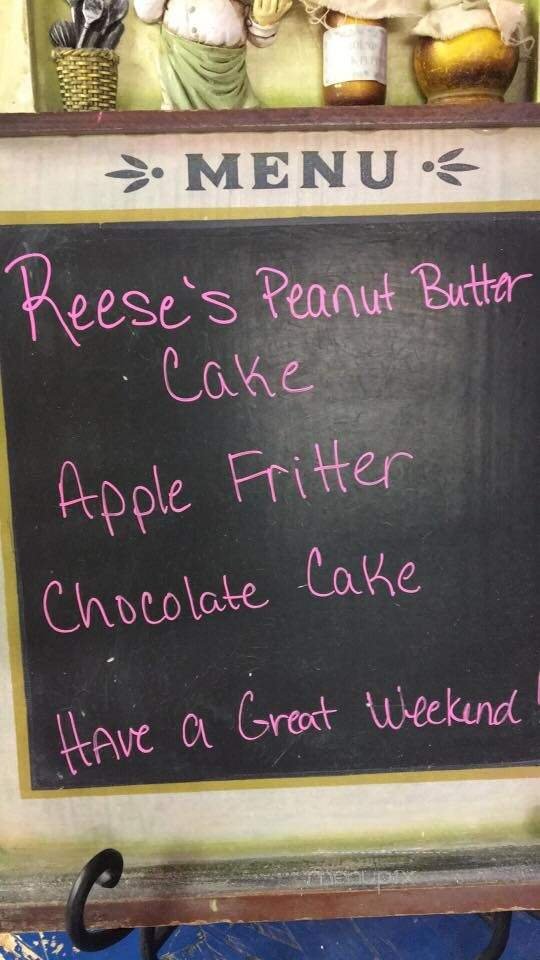 MENU
Reese's Peanut Butter
Cake
Apple Fritter
Chocolate Cake
Have a Great Weekend!
menupix